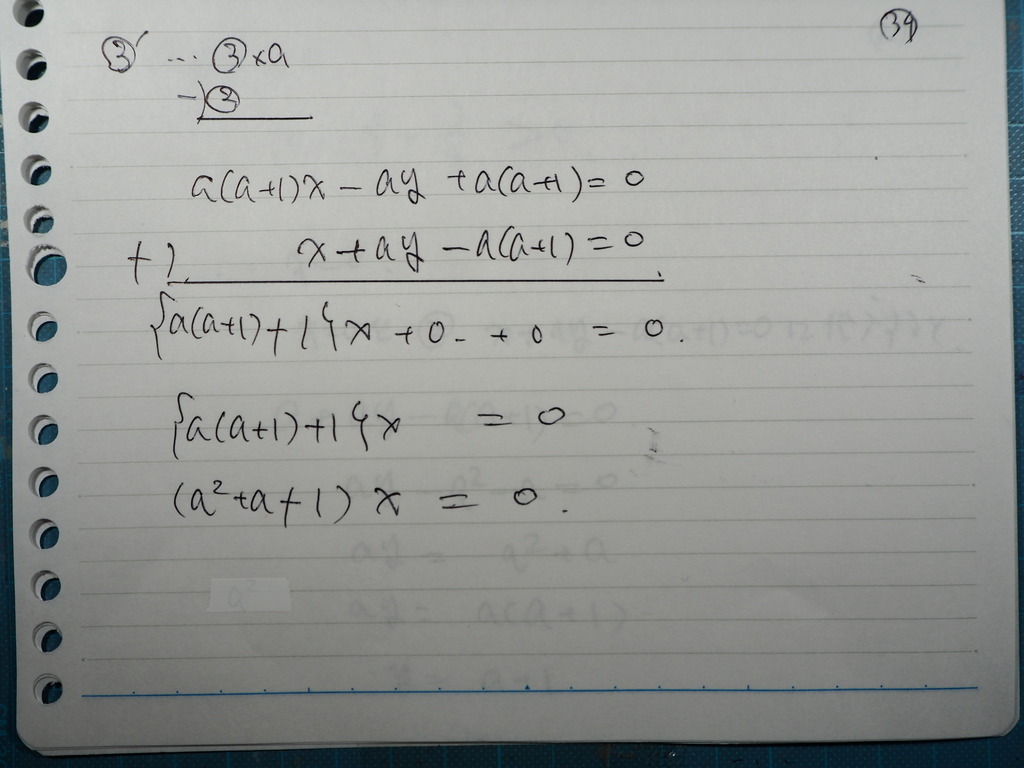 ㊴
③′ … ③×a
−)②
a(a+1)x − ay + a(a+1) = 0
+) x + ay − a(a+1) = 0
{a(a+1)+1}x + 0 + 0 = 0.
{a(a+1)+1}x = 0
(a²+a+1)x = 0.